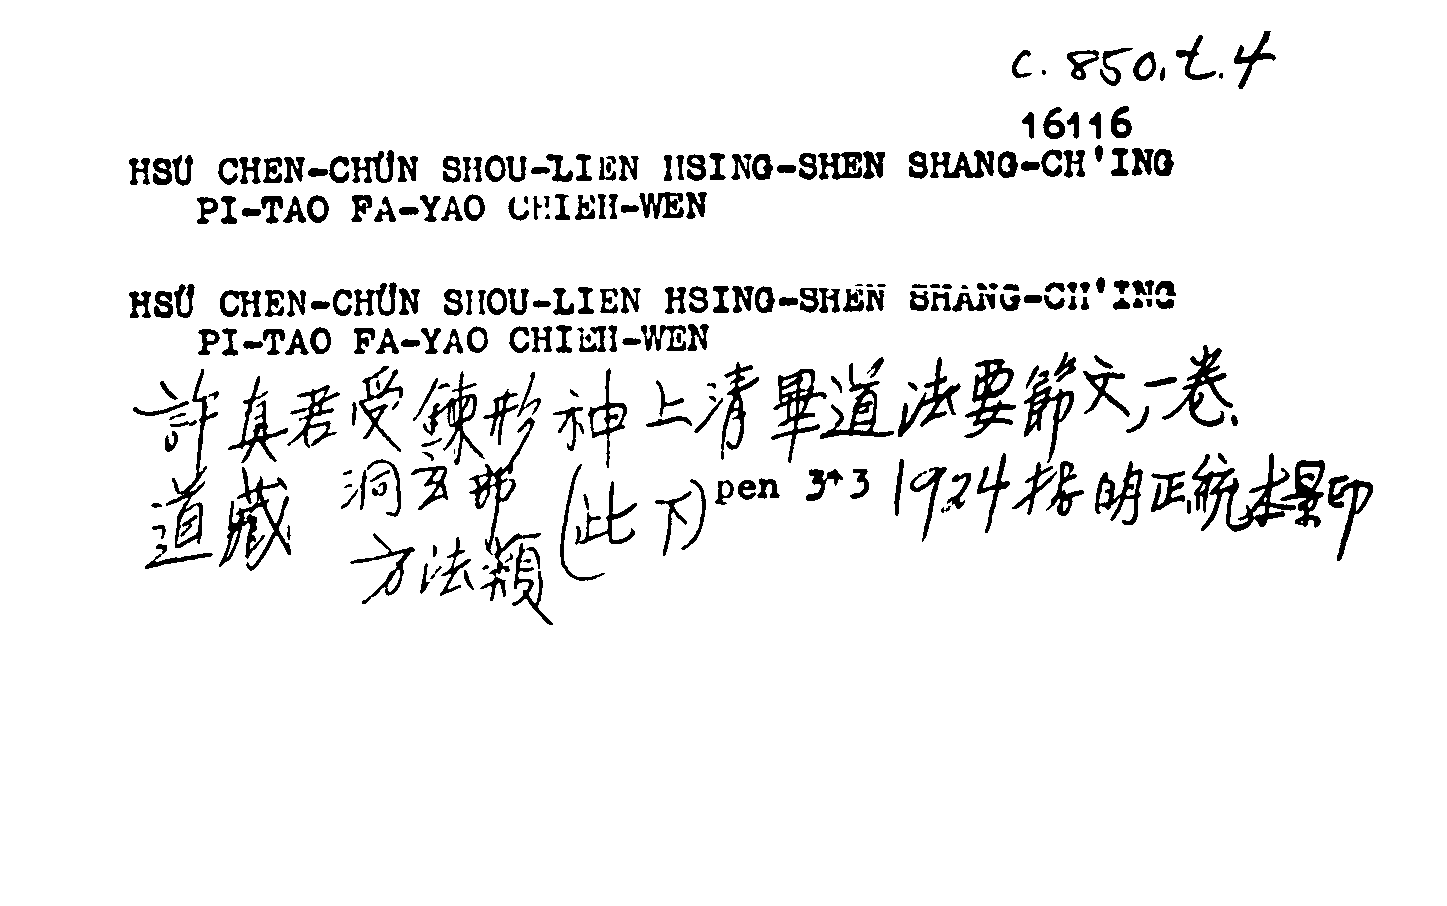 c. 850. t. 4
16116
HSÜ CHEN-CHÜN SHOU-LIEN HSING-SHEN SHANG-CH'ING
PI-TAO FA-YAO CHIEH-WEN
HSÜ CHEN-CHÜN SHOU-LIEN HSING-SHEN SHANG-CH'ING
PI-TAO FA-YAO CHIEH-WEN
許真君受鍊形神上清畢道法要節文,一卷.
道藏 洞玄部 (此下) pen 343 1924 据明正統本景印
方法類